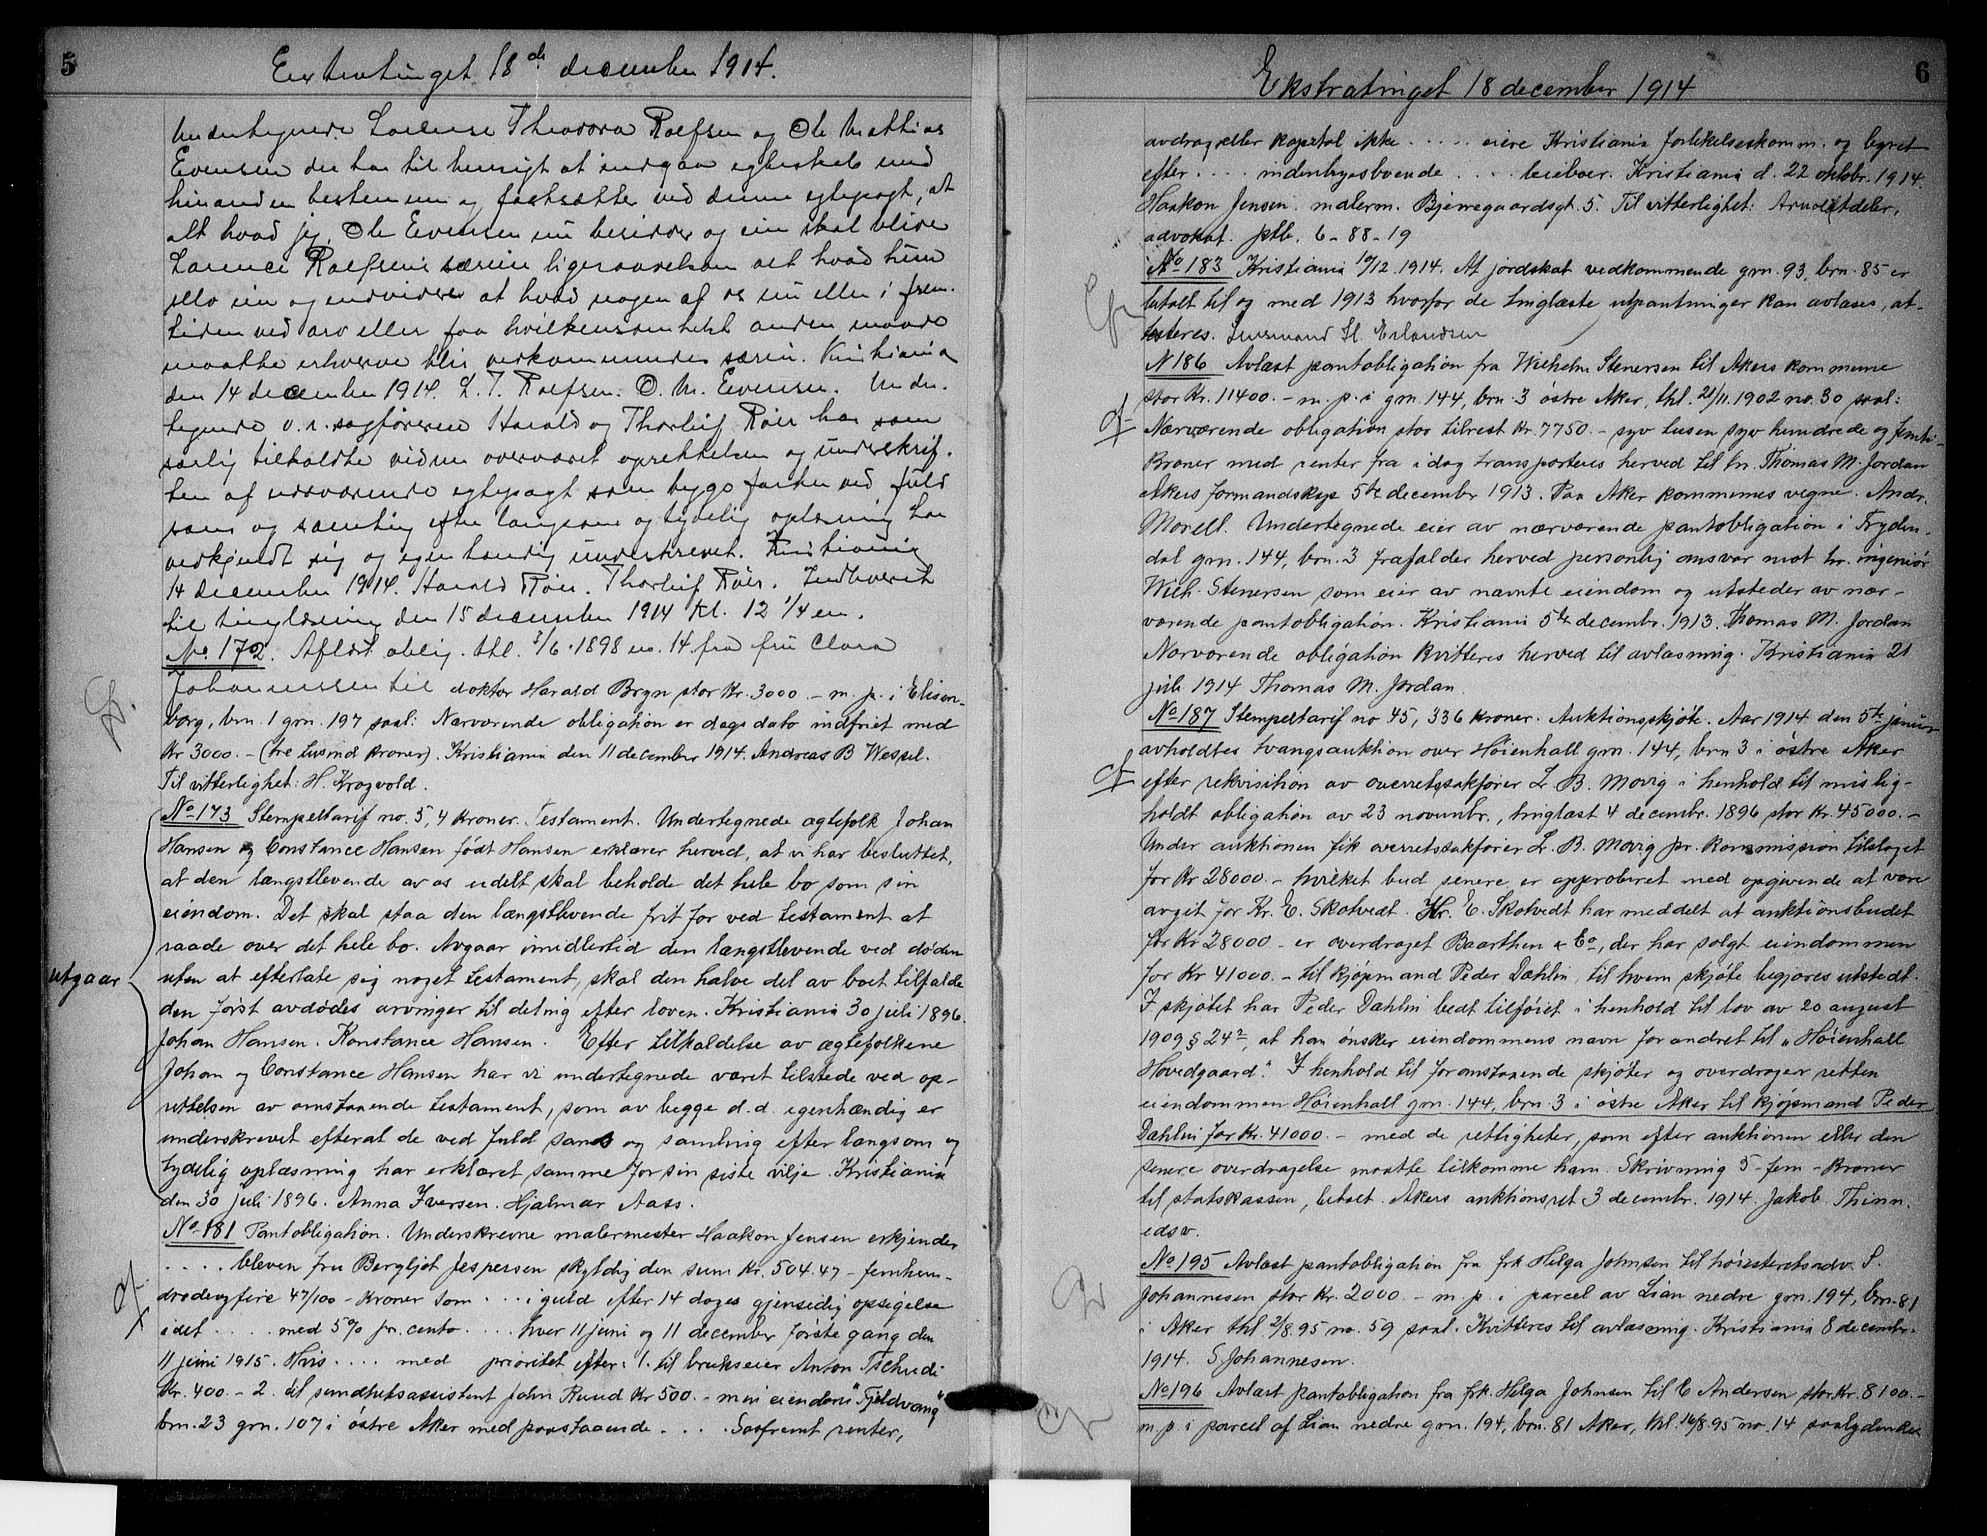 5
Extratinget 18de december 1914.
Undertegnede Laurense Theodora Roefsen og Ole Mathias
Evensen der har til hensigt at indgaa egteskab med
hinanden bestemmer og fastsætter ved denne egtepagt, at
alt hvad jeg, Ole Evensen nu besidder og eier skal blive
Laurence Roefsens særeie ligesaavelsom alt hvad hun
selv eier og endvidere at hvad nogen af os nu eller i frem-
tiden ved arv eller paa hvilkensomhelst anden maade
maatte erhverve blir vedkommendes særeie. Kristiania
den 14 december 1914. L. T. Roefsen. O. M. Evensen. Under-
tegnede o.r. sagførere Harald og Thorleif Røer har som
særlig tilkaldte vidner overværet oprettelsen og underskrif-
ten af nærværende egtepagt som begge parter ved fuld
sans og samling efter langsom og tydelig oplæsning har
vedkjendt sig og egenhændig underskrevet. Kristiania
14 december 1914. Harald Røer. Thorleif Røer. Indleveret
til tinglæsning den 15 december 1914 kl. 12 1/4 em.
No. 172. Aflæst oblig. thl. 7/6 1898 no. 14 fra fru Clara
Johannessen til doktor Harald Bryn stor Kr. 3000.- m. p. i Elisen-
borg, brn. 1 grn. 197 saal: Nærværende obligation er dags dato indfriet med
Kr 3000.- (tre tusind kroner). Kristiania den 11 december 1914. Andreas B Wessel.
Til vitterlighet: H. Krogvold.
No 173 Stempeltarif no. 5, 4 kroner. Testament. Undertegnede ægtefolk Johan
Hansen og Constance Hansen født Hansen erklærer herved, at vi har besluttet,
at den længstlevende av os udelt skal beholde det hele bo som sin
eiendom. Det skal staa den længstlevende frit for ved testament at
raade over det hele bo. Avgaar imidlertid den længstlevende ved døden
utgaar
uten at efterlate sig noget testament, skal den halve del av boet tilfalde
den først avdødes arvinger til deling efter loven. Kristiania 30 juli 1896.
Johan Hansen. Konstance Hansen. Efter tilkaldelse av ægtefolkene
Johan og Constance Hansen har vi undertegnede været tilstede ved op-
rettelsen av omstaaende testament, som av begge d. d. egenhændig er
underskrevet efterat de ved fuld sans og samling efter langsom og
tydelig oplæsning har erklæret samme for sin siste vilje. Kristiania
den 30 juli 1896. Anna Iversen. Hjalmar Aass.
No 181 Pantobligation. Underskrevne malermester Haakon Jensen erkjender
.... bleven fru Bergljot Jespersen skyldig den sum Kr. 504.47 - femhun-
drede og fire 47/100 - Kroner som ... i guld efter 14 dages gjensidig opsigelse
idet .... med 5% pr. cento .... hver 11 juni og 11 december første gang den
11 juni 1915. Hvis .... med prioritet efter: 1. til brukseier Anton Tschudi
Kr. 400.- 2. til sundhetsassistent John Ruud Kr 500.- min eiendom "Fjeldvang"
brn. 23 grn. 107 i østre Aker med paastaaende .... Saafremt renter,
6
Ekstratinget 18 december 1914
avdrag eller kapital ikke .... eiere Kristiania forlikelseskomm. og byret
efter .... indenbysboende .... leieboer. Kristiania d. 22 oktobr. 1914.
Haakon Jensen. malerm. Bjerregaardsgt. 5. Til vitterlighet: Arnoldtdeler,
advokat. ptb. 6-88-19
No 183 Kristiania 10/12 1914. At jordskat vedkommende grn. 93, brn. 85 er
betalt til og med 1913 hvorfor de tinglæste utpantninger kan avlæses, at-
testeres. Lensmand Sl. Erlandsen
N 186 Avlæst pantobligation fra Wilhelm Stenersen til Akers kommune
stor Kr. 11400.- m. p. i grn. 144, brn. 3 østre Aker, thl. 21/11. 1902 no. 30 saal:
Nærværende obligation stor tilrest Kr. 7750.- syv tusen syv hundrede og femti-
Kroner med renter fra idag transporteres herved til hr. Thomas M. Jordan
Akers formandskap 5te december 1913. Paa Aker kommunes vegne. Andr.
Morell. Undertegnede eier av nærværende pantobligation i Fryden-
dal grn. 144, brn. 3 frafalder herved personlig ansvar mot hr. ingeniør
Wilh. Stenersen som eier av nævnte eiendom og utsteder av nær-
værende pantobligation. Kristiania 5te decembr. 1913. Thomas M. Jordan
Nærværende obligation kvitteres herved til avlæsning. Kristiania 21
juli 1914 Thomas M. Jordan.
No 187 Stempeltarif no 45, 336 kroner. Auktionsskjøte. Aar 1914 den 5te januar
avholdtes tvangsauktion over Høienhall grn. 144, brn 3 i østre Aker
efter rekvisition av overretssakfører L. B. Movig i henhold til mislig-
holdt obligation av 23 novembr., tinglæst 4 decembr. 1896, stor Kr. 45000.-
Under auktionen fik overretssakfører L. B. Movig pr. kommission tilslaget
for Kr 28000.- hvilket bud senere er approberet med opgivende at være
avgit for Kr. E. Skotvedt. Hr. E. Skotvedt har meddelt at auktionsbudet
for Kr 28000.- er overdraget Baarthen & Co, der har solgt eiendommen
for Kr 41000.- til kjøpmand Peder Dæhlin, til hvem skjøte begjæres utstedt.
I skjøtet har Peder Dæhlin bedt tilføiet i henhold til lov av 20 august
1909 § 24², at han ønsker eiendommens navn forandret til "Høienhall
Hovedgaard". I henhold til foranstaaende skjøter og overdrager retten
eiendommen Høienhall grn. 144, brn. 3 i østre Aker til kjøpmand Peder
Dæhlin for Kr. 41000.- med de rettigheter, som efter auktionen eller den
senere overdragelse maatte tilkomme ham. Skrivning 5 - fem - Kroner
til statskassen, betalt. Akers auktionsret 3 decembr. 1914. Jakob Thinn.
edsv.
No 195 Avlæst pantobligation fra frk Helga Johnsen til høiesteretsadv. S.
Johannesen stor Kr. 2000.- m. p. i parcel av Lian nedre grn. 194, brn. 81
i Aker thl. 2/8. 95 no. 59 saal. Kvitteres til avlæsning. Kristiania 8 decembr.
1914. S. Johannesen.
No 196 Avlæst pantobligation fra frk. Helga Johnsen til C Andersen stor Kr. 8100.-
m. p. i parcel af Lian nedre grn. 194, brn. 81 Aker, thl. 16/8. 95 no. 14 saalydende